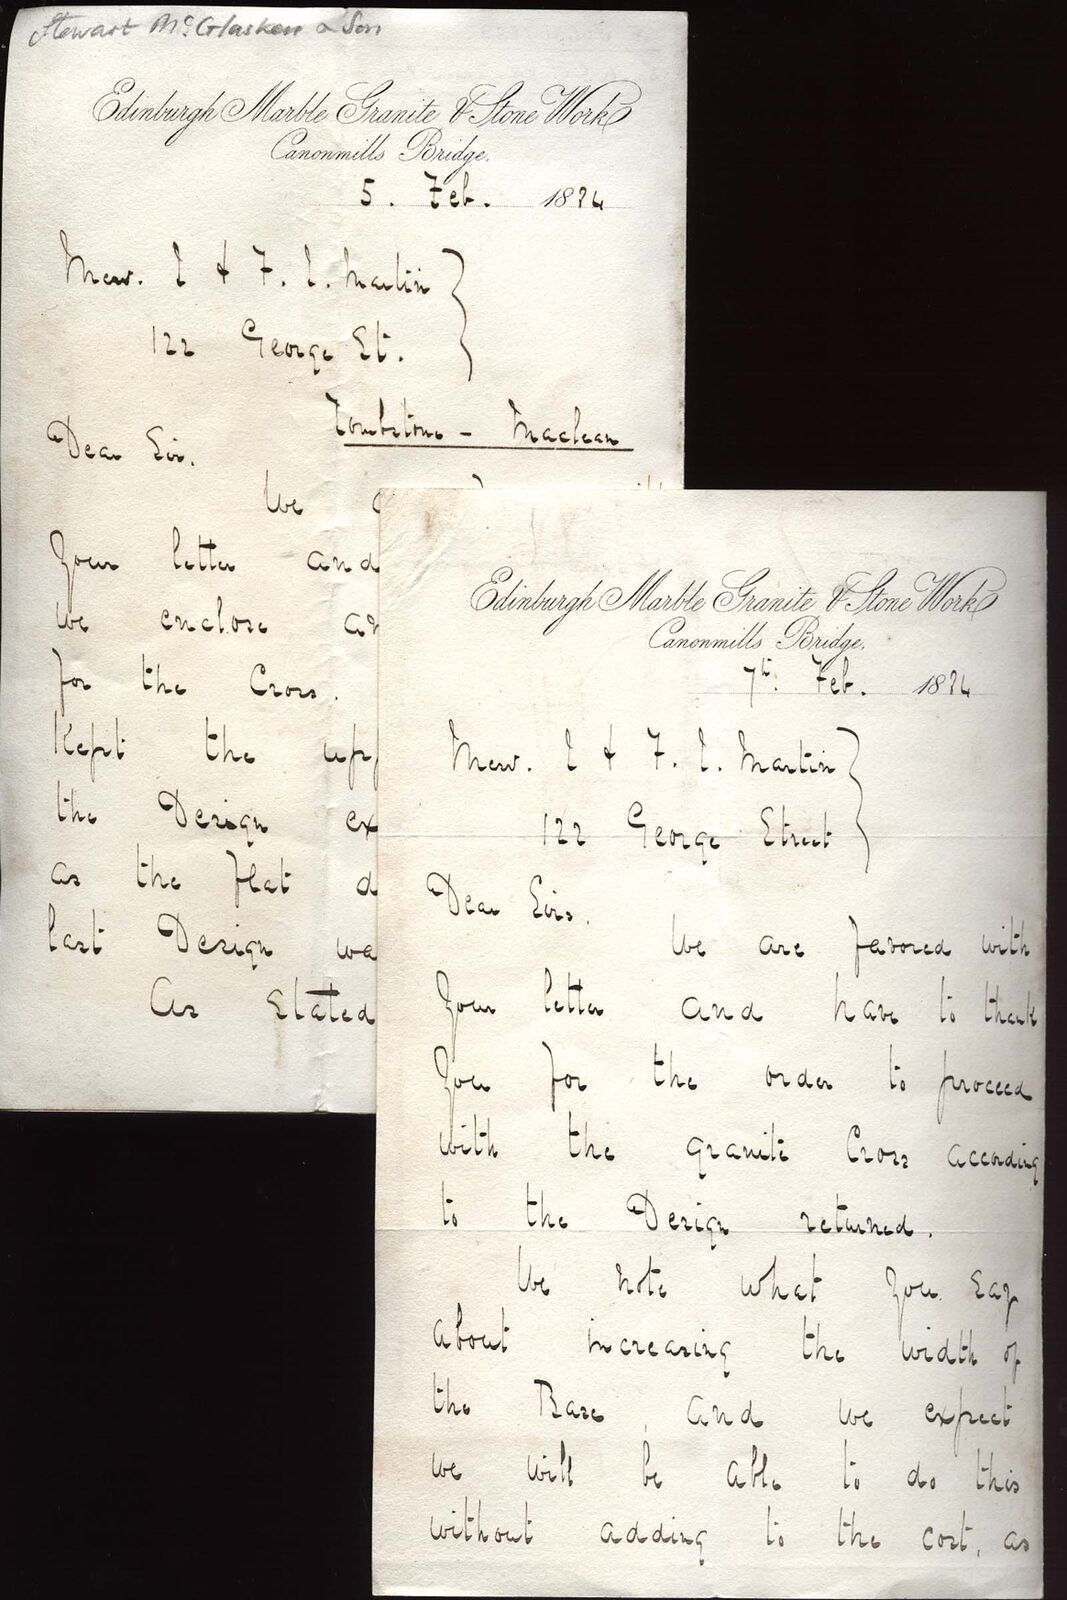 Stewart McGlasken & Son
Edinburgh Marble Granite & Stone Works
Canonmills Bridge.
5. Feb. 1894
Messrs. J & F. J. Martin
122 George St.
Tombstone - Maclean
Dear Sir.
We
Your letter and
we enclose an
for the Cross.
Kept the upp
the Design ex
as the flat d
last Design wa
As Stated
Edinburgh Marble Granite & Stone Works
Canonmills Bridge.
7th. Feb. 1894
Messrs. J & F. J. Martin
122 George Street
Dear Sirs.
We are favored with
Your letter and have to thank
You for the order to proceed
with the granite Cross according
to the Design returned.
We note what you say
about increasing the width of
the Base, and we expect
we will be able to do this
without adding to the cost, as